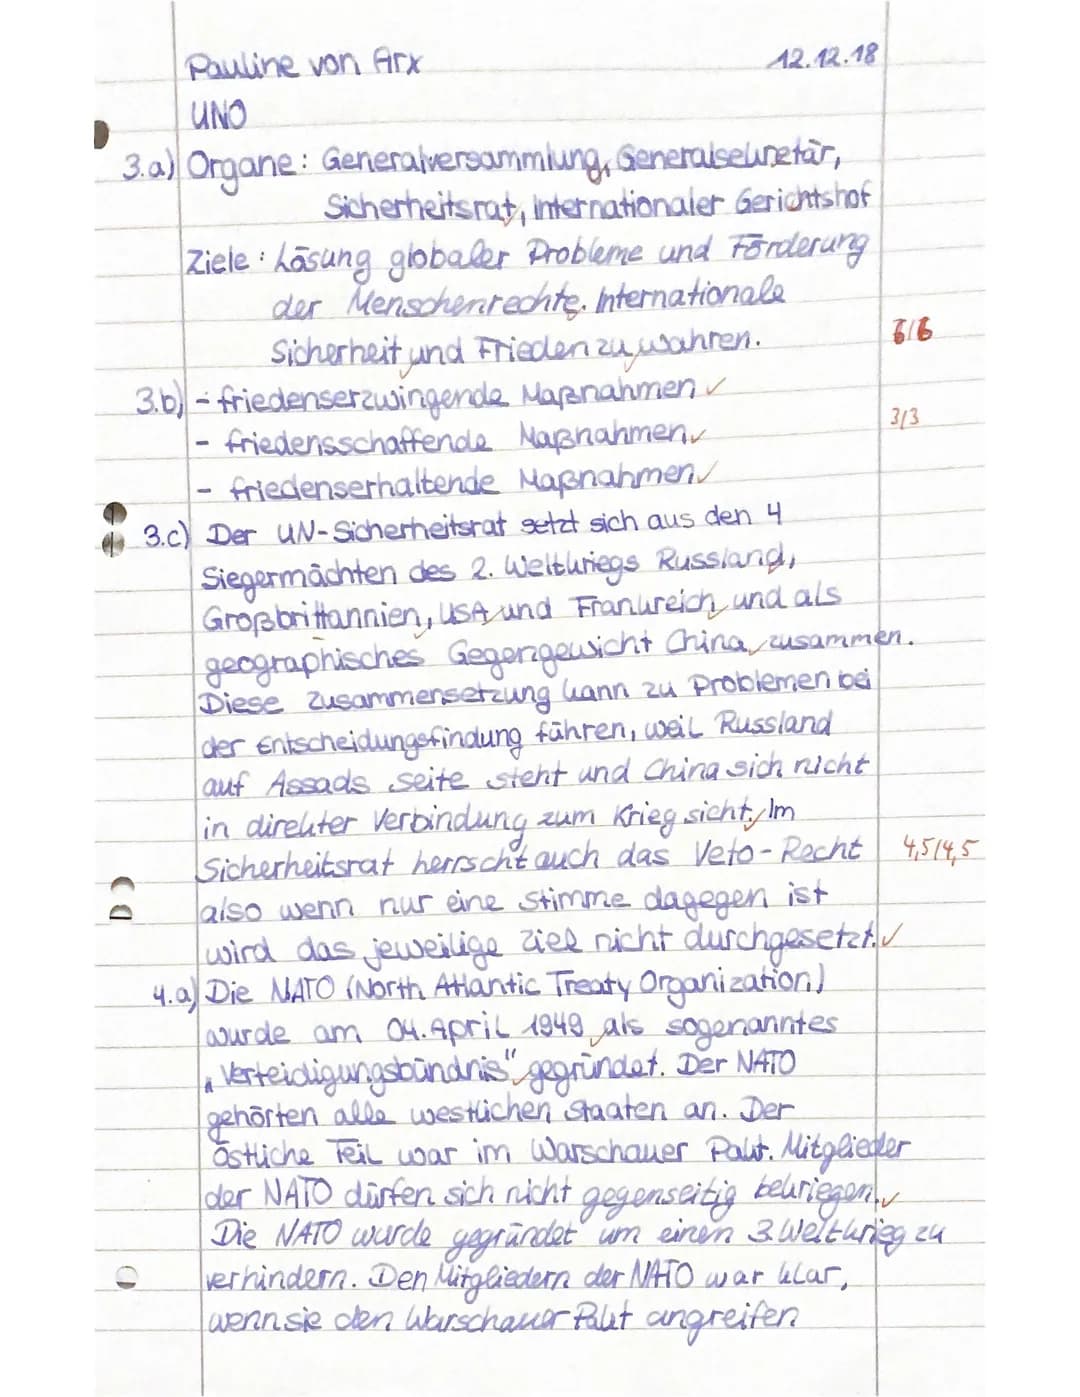 Pauline von Arx 12.12.18
UNO
3.a) Organe: Generalversammlung, Generalsekretär,
Sicherheitsrat, Internationaler Gerichtshof
Ziele: Lösung globaler Probleme und Förderung
der Menschenrechte. Internationale
Sicherheit und Frieden zu wahren. 6/6
3.b) - friedenserzwingende Maßnahmen ✓
3/3
- friedensschaffende Maßnahmen ✓
- friedenserhaltende Maßnahmen ✓
3.c) Der UN-Sicherheitsrat setzt sich aus den 4
Siegermächten des 2. Weltkriegs Russland,
Großbrittannien, USA und Frankreich und als
geographisches Gegengewicht China zusammen.
Diese Zusammensetzung kann zu Problemen bei
der Entscheidungsfindung führen, weil Russland
auf Assads Seite steht und China sich nicht
in direkter Verbindung zum Krieg sieht. Im
Sicherheitsrat herrscht auch das Veto-Recht 4,5/4,5
also wenn nur eine Stimme dagegen ist
wird das jeweilige Ziel nicht durchgesetzt. ✓
4.a) Die NATO (North Atlantic Treaty Organization)
wurde am 04. April 1949 als sogenanntes
„Verteidigungsbündnis" gegründet. Der NATO
gehörten alle westlichen Staaten an. Der
östliche Teil war im Warschauer Pakt. Mitglieder
der NATO dürfen sich nicht gegenseitig bekriegen. ✓
Die NATO wurde gegründet um einen 3. Weltkrieg zu
verhindern. Den Mitgliedern der NATO war klar,
wenn sie den Warschauer Pakt angreifen